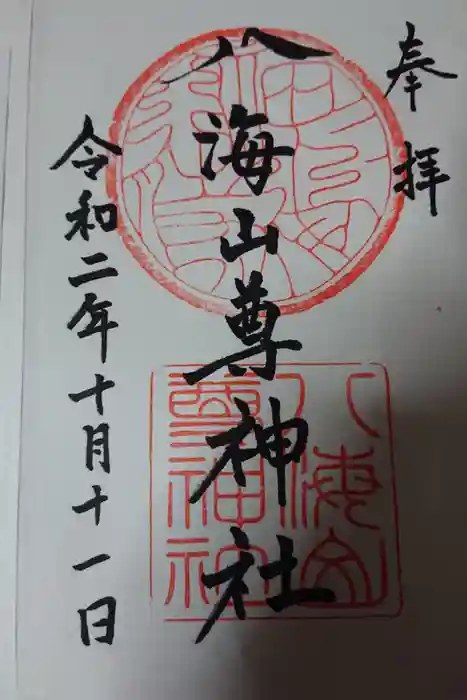 奉拝
八海山尊神社
令和二年十月十一日